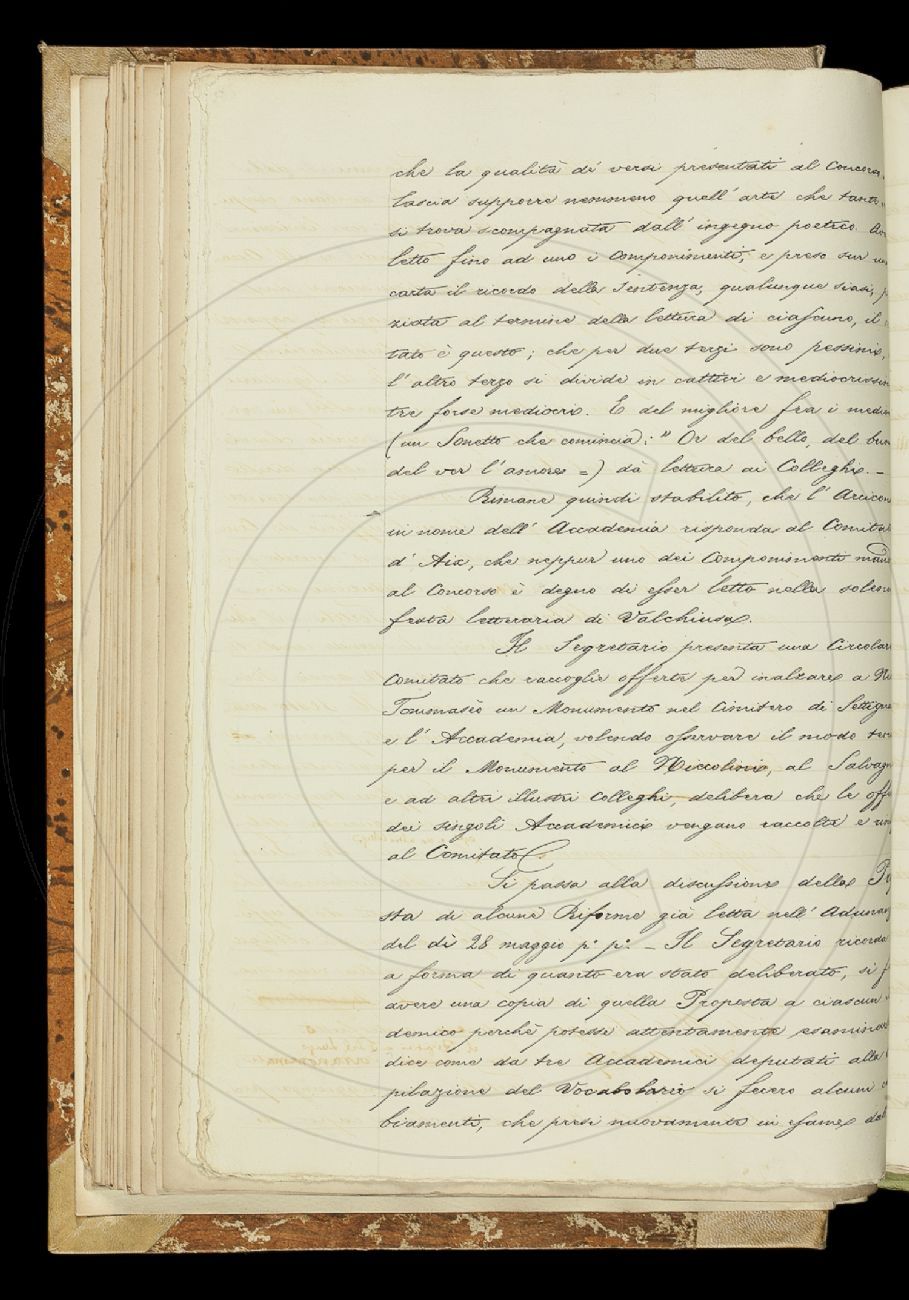 che la qualità de' versi presentati al Concors
lascia supporre nemmeno quell' arte che tant
si trova scompagnata dall' ingegno poetico.
letto fino ad uno i componimenti, e preso sur un
carta il ricordo della sentenza, qualunque siasi, p
ziata al termine della lettura di ciascuno, il
tato è questo; che per due terzi sono pessimi,
l' altro terzo si divide in cattivi e mediocrissim
tre forse mediocri. E del migliore fra i medio
(un Sonetto che comincia: " Or del bello, del buon
del ver l' amore =) dà lettura ai Colleghi. -
Rimane quindi stabilito, che l' Arcicon
in nome dell' Accademia risponda al Comitat
d' Aix, che neppur uno dei Componimenti man
al Concorso è degno di esser letto nella solenn
festa letteraria di Valchiusa.
Il Segretario presenta una Circolar
Comitato che raccoglie offerte per inalzare a Ni
Tommasèo un Monumento nel Cimitero di Settign
e l' Accademia, volendo osservare il modo ten
per il Monumento al Niccolini, al Salvagn
e ad altri illustri Colleghi, delibera che le offe
dei singoli Accademici vengano raccolte e
al Comitato
Si passa alla discussione della Pro
sta di alcune Riforme già letta nell' Adunan
del dì 28 maggio p: p: - Il Segretario ricorda
a forma di quanto era stato deliberato, si f
avere una copia di quella Proposta a ciascun
demico perchè potesse attentamente esaminar
dice come da tre Accademici deputati alla
pilazione del Vocabolario si fecero alcuni
biamenti, che presi nuovamente in esame dal